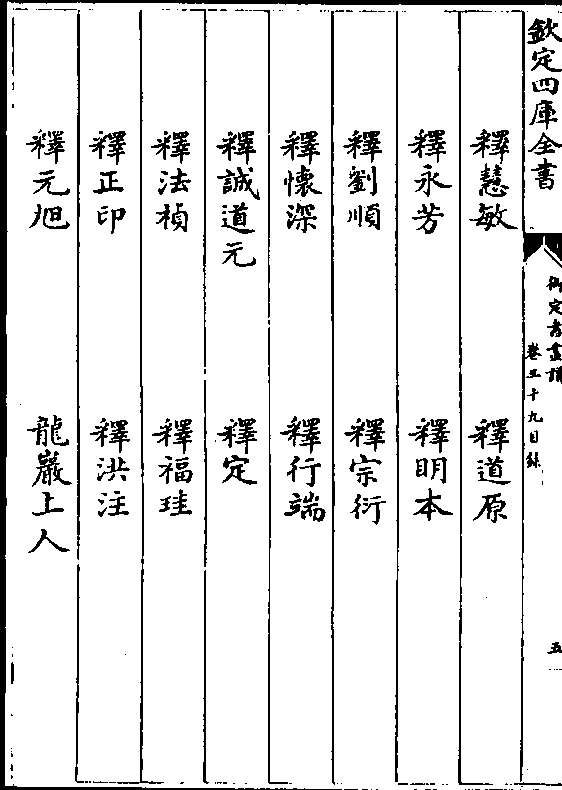 欽定四庫全書
御定書畫譜
卷三十九目錄
五
釋慧敏 釋道原
釋永芳 釋明本
釋劉順 釋宗衍
釋懷深 釋行端
釋誠道元 釋定
釋法楨 釋福珪
釋正印 釋洪注
釋元旭 龍巖上人